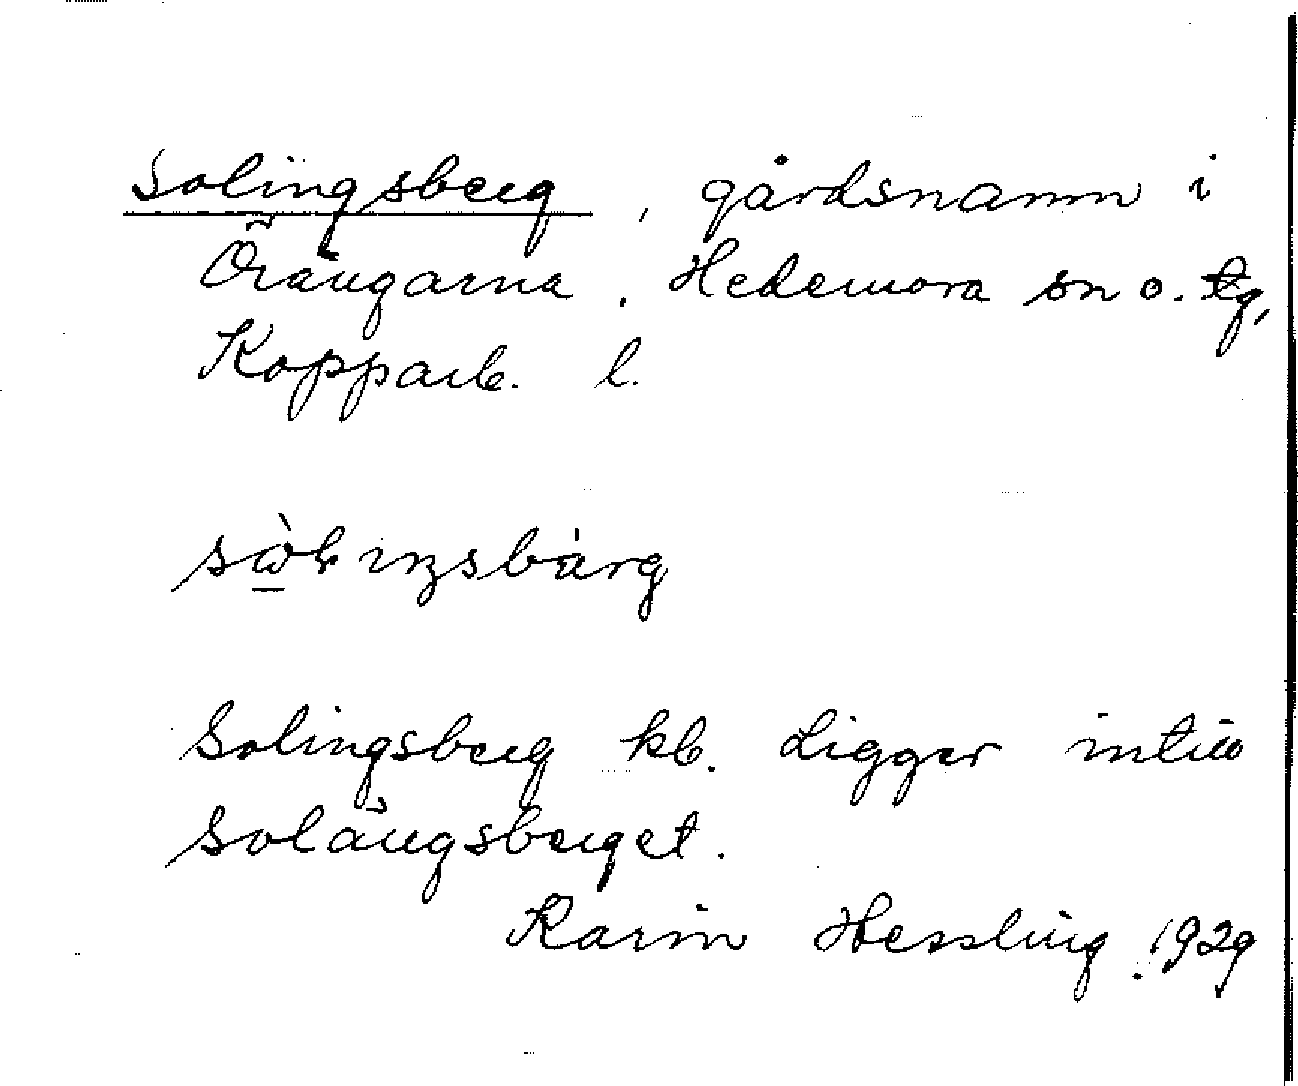 Solingsberg, gårdsnamn i
Örängarna, Hedemora sn o. tg,
Kopparb. l.
Solingsberg kb. Ligger intill
Solängsberget.
Karin Hessling 1929